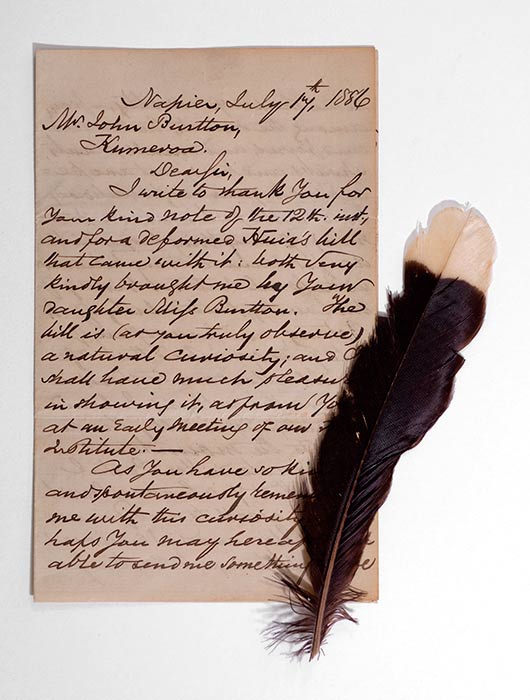 Napier, July 17th, 1886
Mr. John Burtton,
Kumeroa.
Dear Sir,
I write to thank You for
Your kind note of the 12th. inst,
and for a deformed Huia's bill
that came with it: both very
kindly brought me by Your
daughter Miss Burtton. The
bill is (as you truly observe)
a natural curiosity; and I
shall have much
in showing it, as from
at an Early Meeting of our
Institute.—
As You have so
and spontaneously
me with this curiosity
haps You may
able to send me